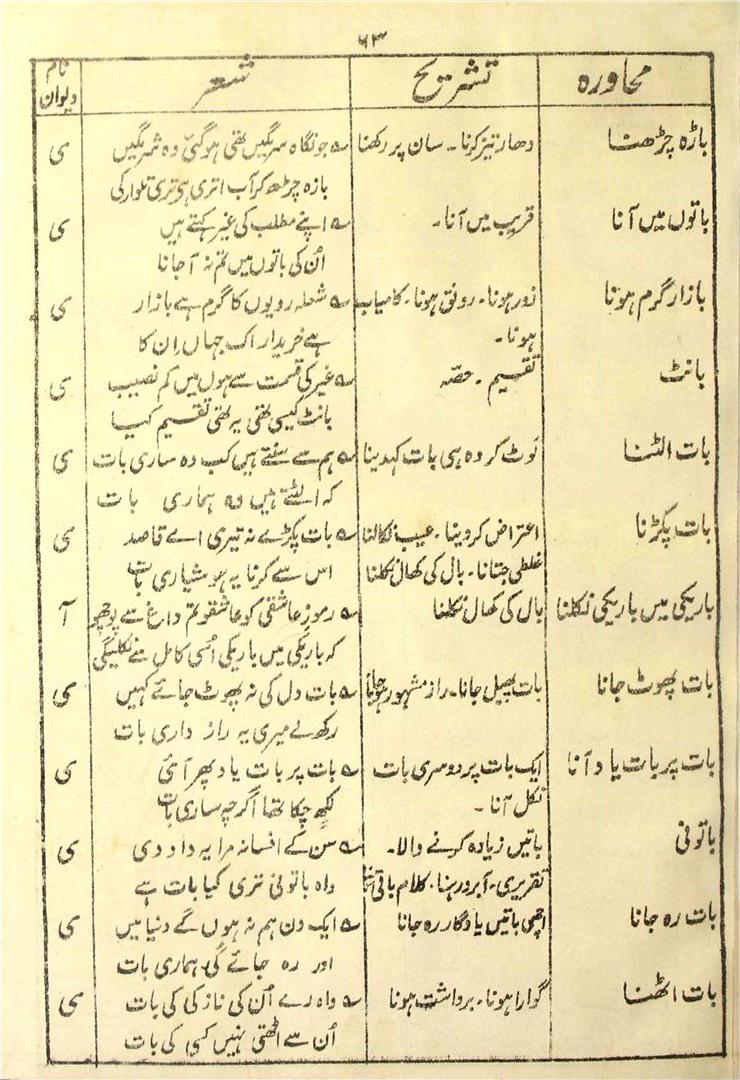 ۶۳
محاورہ تشریح شعر نام دیوان
باڑہ چڑھنا دھار تیز کرنا۔ سان پر رکھنا ؎ جو نگاہ سرمگیں تھی ہو گئی وہ شرمگیں ی
باڑہ چڑھ کر آب اتری ہی تری تلوار کی
باتوں میں آنا فریب میں آنا۔ ؎ اپنے مطلب کی غیر کہتے ہیں ی
اُن کی باتوں میں تم نہ آ جانا
بازار گرم ہونا زور ہونا۔ رونق ہونا۔ کامیاب ؎ شعلہ رویوں کا گرم ہے بازار ی
ہونا۔ ہے خریدار اک جہاں اِن کا
بانٹ تقسیم۔ حصّہ ؎ غیر کی قسمت سے ہوں میں کم نصیب ی
بانٹ کیسی تھی یہ تھی تقسیم کیا
بات الٹنا لَوٹ کر وہ ہی بات کہدینا ؎ ہم سے سنتے ہیں کب وہ ساری بات ی
کہ الٹتے ہیں وہ ہماری بات
بات پکڑنا اعتراض کر دینا۔ عیب نکالنا ؎ بات پکڑے نہ تیری اے قاصد ی
غلطی جتانا۔ بال کی کھال نکلنا اس سے کرنا یہ ہوشیاری بات
باریکی میں باریکی نکلنا بال کی کھال نکلنا ؎ رموزِ عاشقی کو عاشقو تم داغ سے پوچھو آ
کہ باریکی میں باریکی اُسی کامل سے نکلیگی
بات پھوٹ جانا بات پھیل جانا۔ راز مشہور ہو جانا ؎ بات دل کی نہ پھوٹ جائے کہیں ی
رکھ لے میری یہ راز داری بات
بات پر بات یاد آنا ایک بات پر دوسری بات ؎ بات پر بات یاد پھر آئی ی
نکل آنا۔ لکھ چکا تھا اگرچہ ساری بات
باتونی باتیں زیادہ کرنے والا۔ ؎ سن کے افسانہ مرا یہ داد دی ی
تقریری۔ آبرو رہنا۔ کلام باقی رہنا واہ باتونی تری کیا بات ہے
بات رہ جانا اچھی باتیں یادگار رہ جانا ؎ ایک دن ہم نہ ہوں گے دنیا میں ی
اور رہ جائے گی ہماری بات
بات اٹھنا گوارا ہونا۔ برداشت ہونا ؎ واہ رے اُن کی نازکی کی بات ی
اُن سے اٹھتی نہیں کسی کی بات